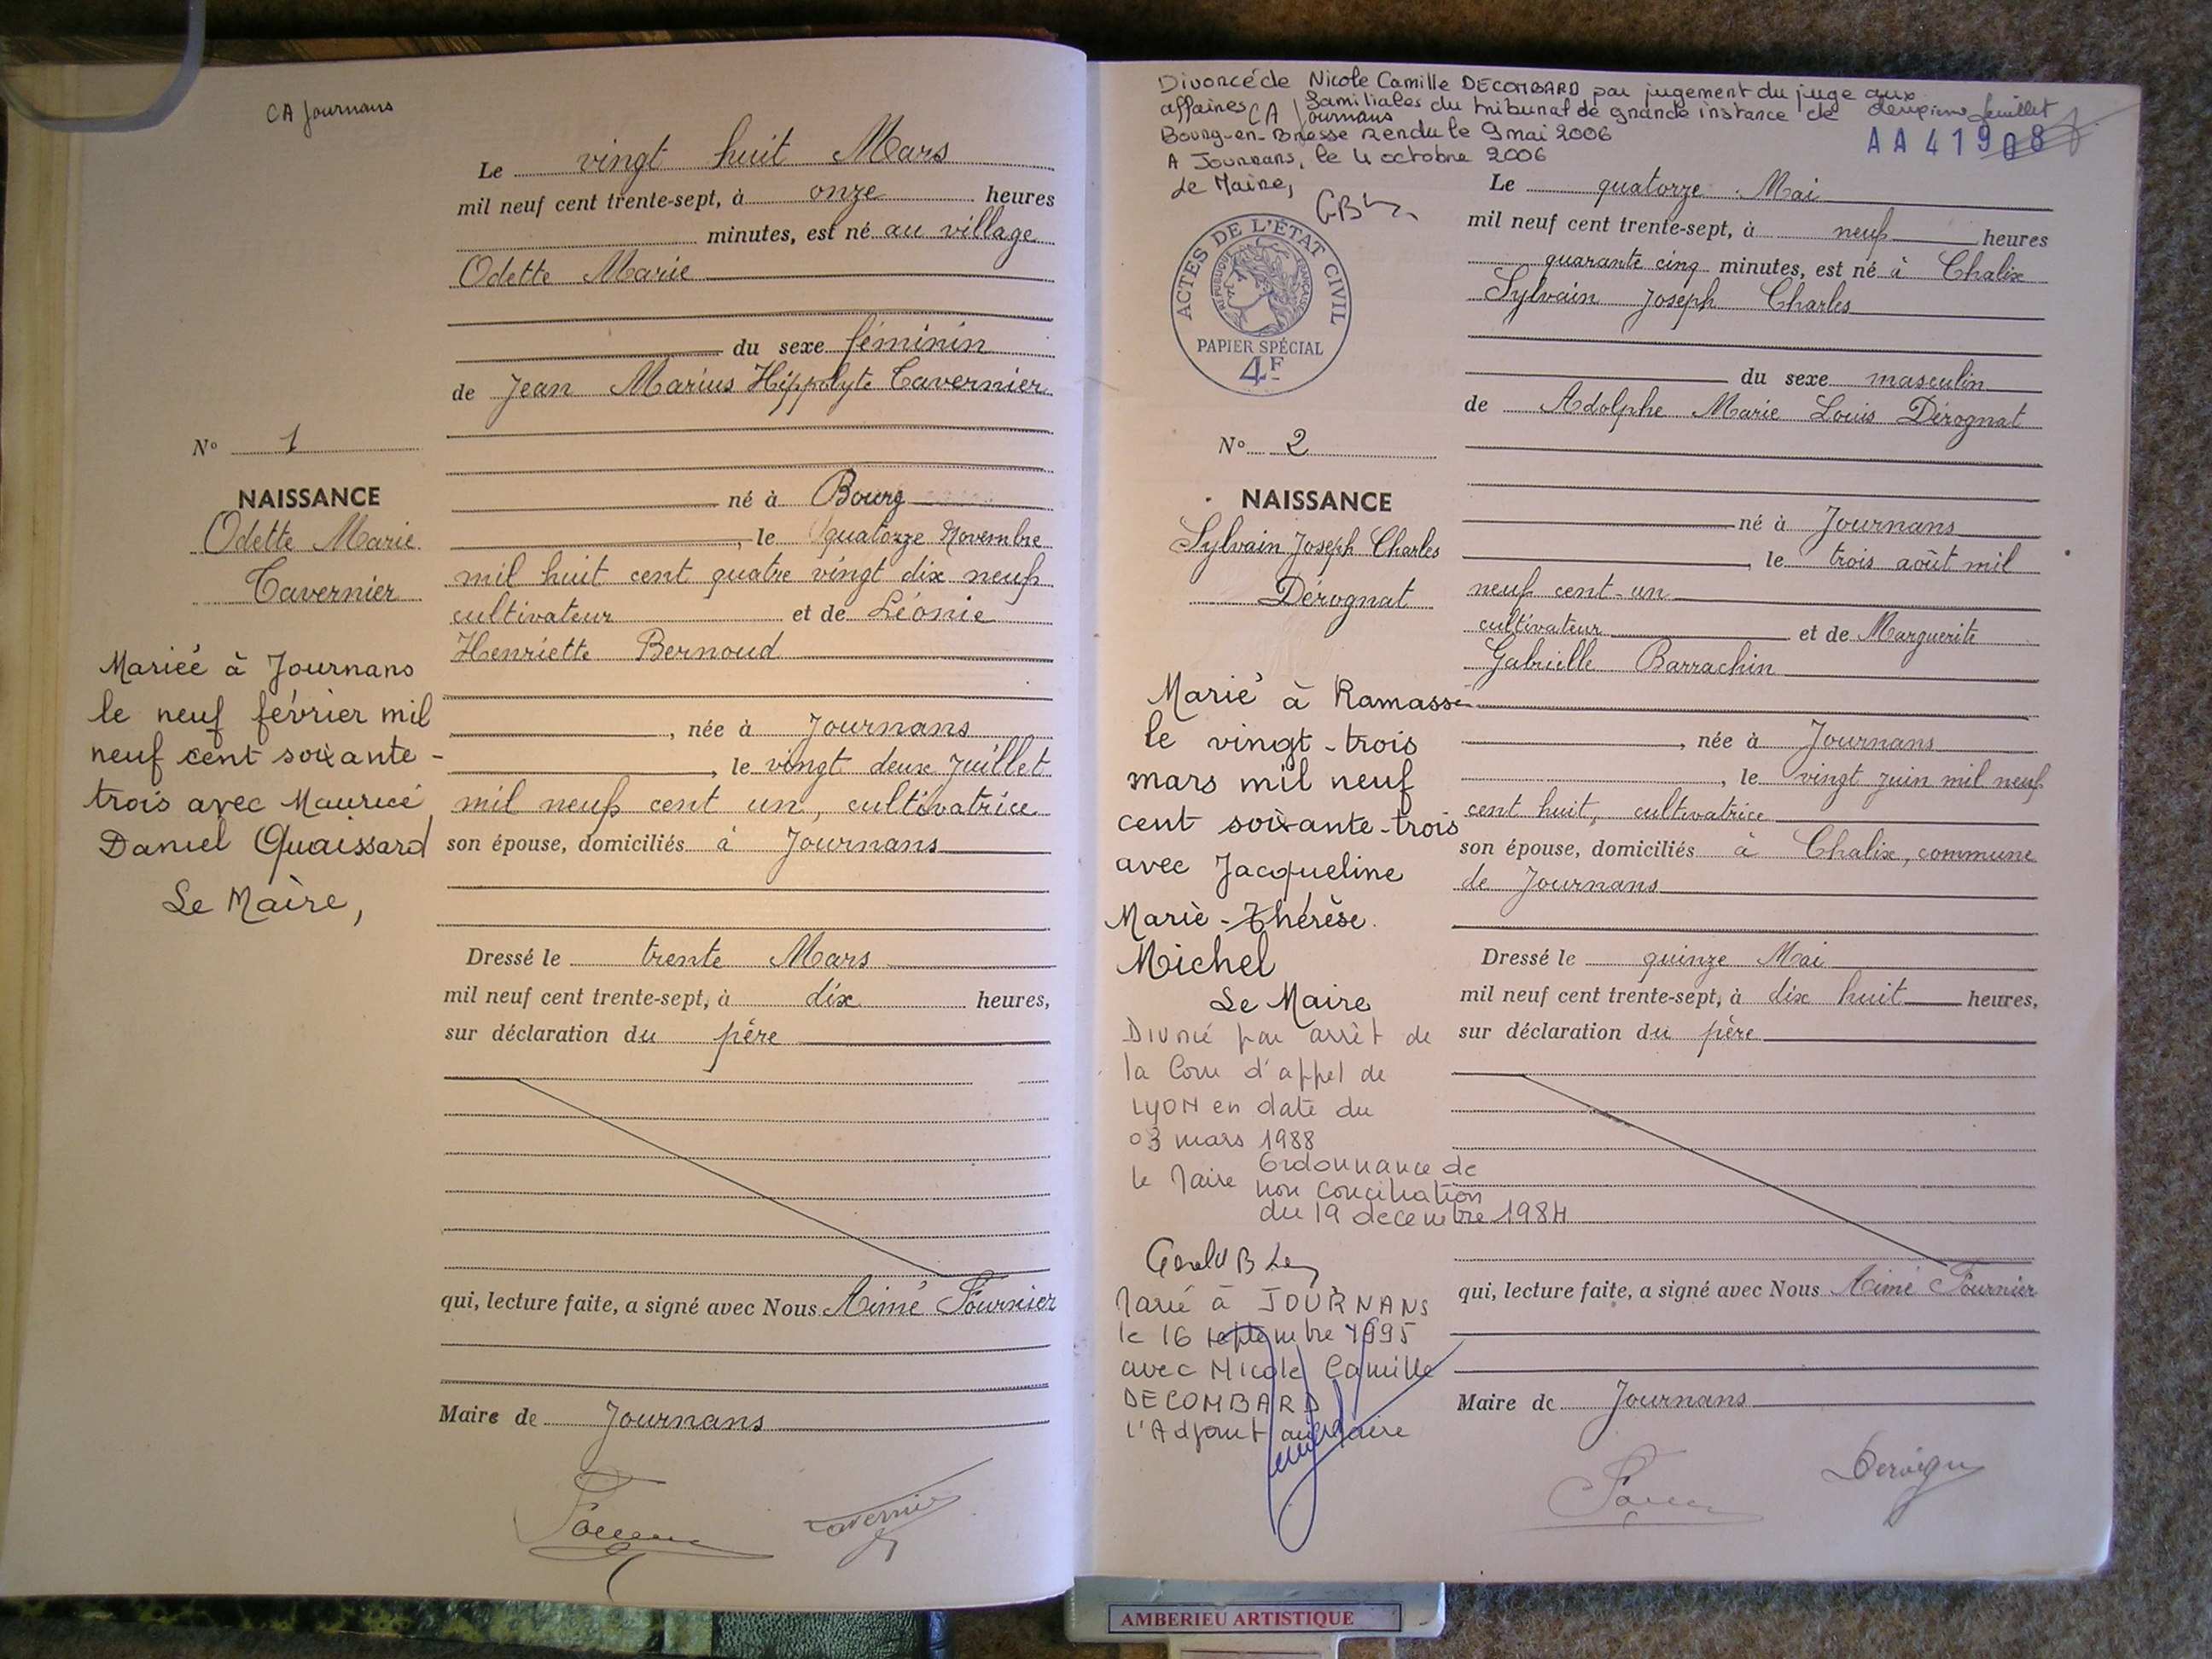 CA Journans
Le vingt huit Mars
mil neuf cent trente-sept, à onze heures
minutes, est né au village
Odette Marie
du sexe féminin
de Jean Marius Hippolyte Tavernier
N° 1
NAISSANCE
Odette Marie
Tavernier
né à Bourg
, le quatorze Novembre
mil huit cent quatre vingt dix neuf
cultivateur et de Léonie
Henriette Bernoud
, née à Journans
, le vingt deux Juillet
mil neuf cent un, cultivatrice
son épouse, domiciliés à Journans
Mariée à Journans
le neuf février mil
neuf cent soixante-
trois avec Maurice
Daniel Quaissard
Le Maire,
Dressé le trente Mars
mil neuf cent trente-sept, à dix heures,
sur déclaration du père
qui, lecture faite, a signé avec Nous Aimé Fournier
Maire de Journans
Tavernier
Divorcé de Nicole Camille DECOMBARD par jugement du juge aux
affaires familiales du tribunal de grande instance de
CA Journans
Bourg-en-Bresse rendu le 9 mai 2006
A Journans, le 4 octobre 2006
Le Maire,
deuxième feuillet
AA 41908
ACTES DE L'ÉTAT CIVIL
RÉPUBLIQUE FRANÇAISE
PAPIER SPÉCIAL
4F
Le quatorze Mai
mil neuf cent trente-sept, à neuf heures
quarante cinq minutes, est né à Chalix
Sylvain Joseph Charles
du sexe masculin
de Adolphe Marie Louis Dérognat
N° 2
NAISSANCE
Sylvain Joseph Charles
Dérognat
né à Journans
, le trois août mil
neuf cent-un
cultivateur et de Marguerite
Gabrielle Barrachin
, née à Journans
, le vingt juin mil neuf
cent huit, cultivatrice
son épouse, domiciliés à Chalix, commune
de Journans
Marié à Ramasse
le vingt-trois
mars mil neuf
cent soixante-trois
avec Jacqueline
Marie-Thérèse
Michel
Le Maire
Divorcé par arrêt de
la Cour d'appel de
LYON en date du
03 mars 1988
le Maire
Ordonnance de
non conciliation
du 19 decembre 1984
Marié à JOURNANS
le 16 septembre 1995
avec Nicole Camille
DECOMBARD
l'Adjoint au Maire
Dressé le quinze Mai
mil neuf cent trente-sept, à dix huit heures,
sur déclaration du père
qui, lecture faite, a signé avec Nous Aimé Fournier
Maire de Journans
AMBERIEU ARTISTIQUE